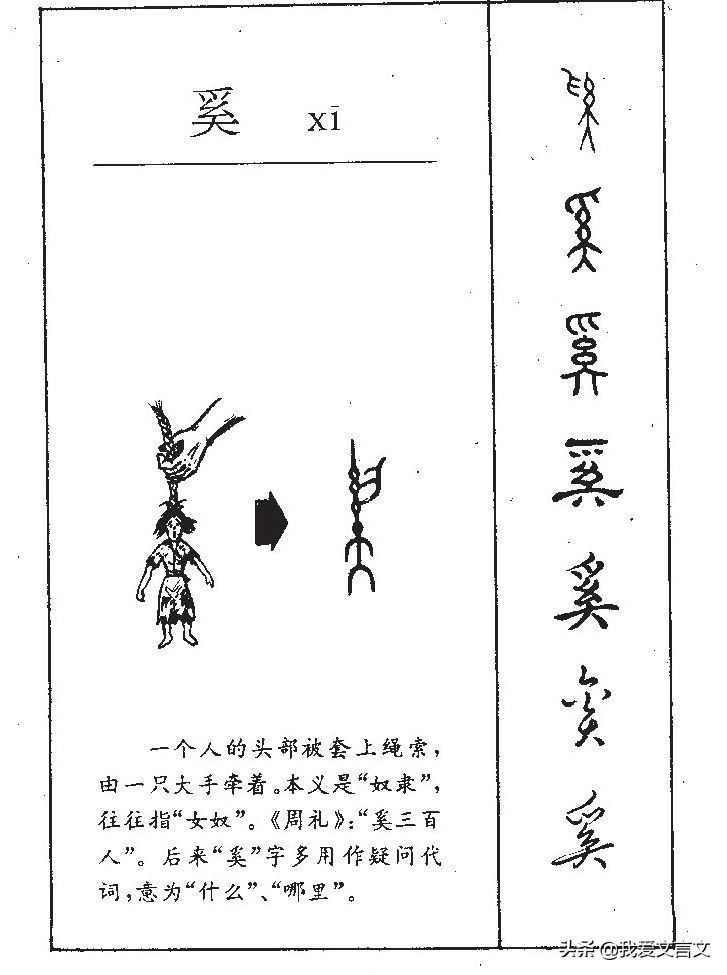 奚 xī
一个人的头部被套上绳索，
由一只大手牵着。本义是“奴隶”，
往往指“女奴”。《周礼》：“奚三百
人”。后来“奚”字多用作疑问代
词，意为“什么”、“哪里”。
奚
奚
奚
奚
奚
奚
奚
头条 @我爱文言文